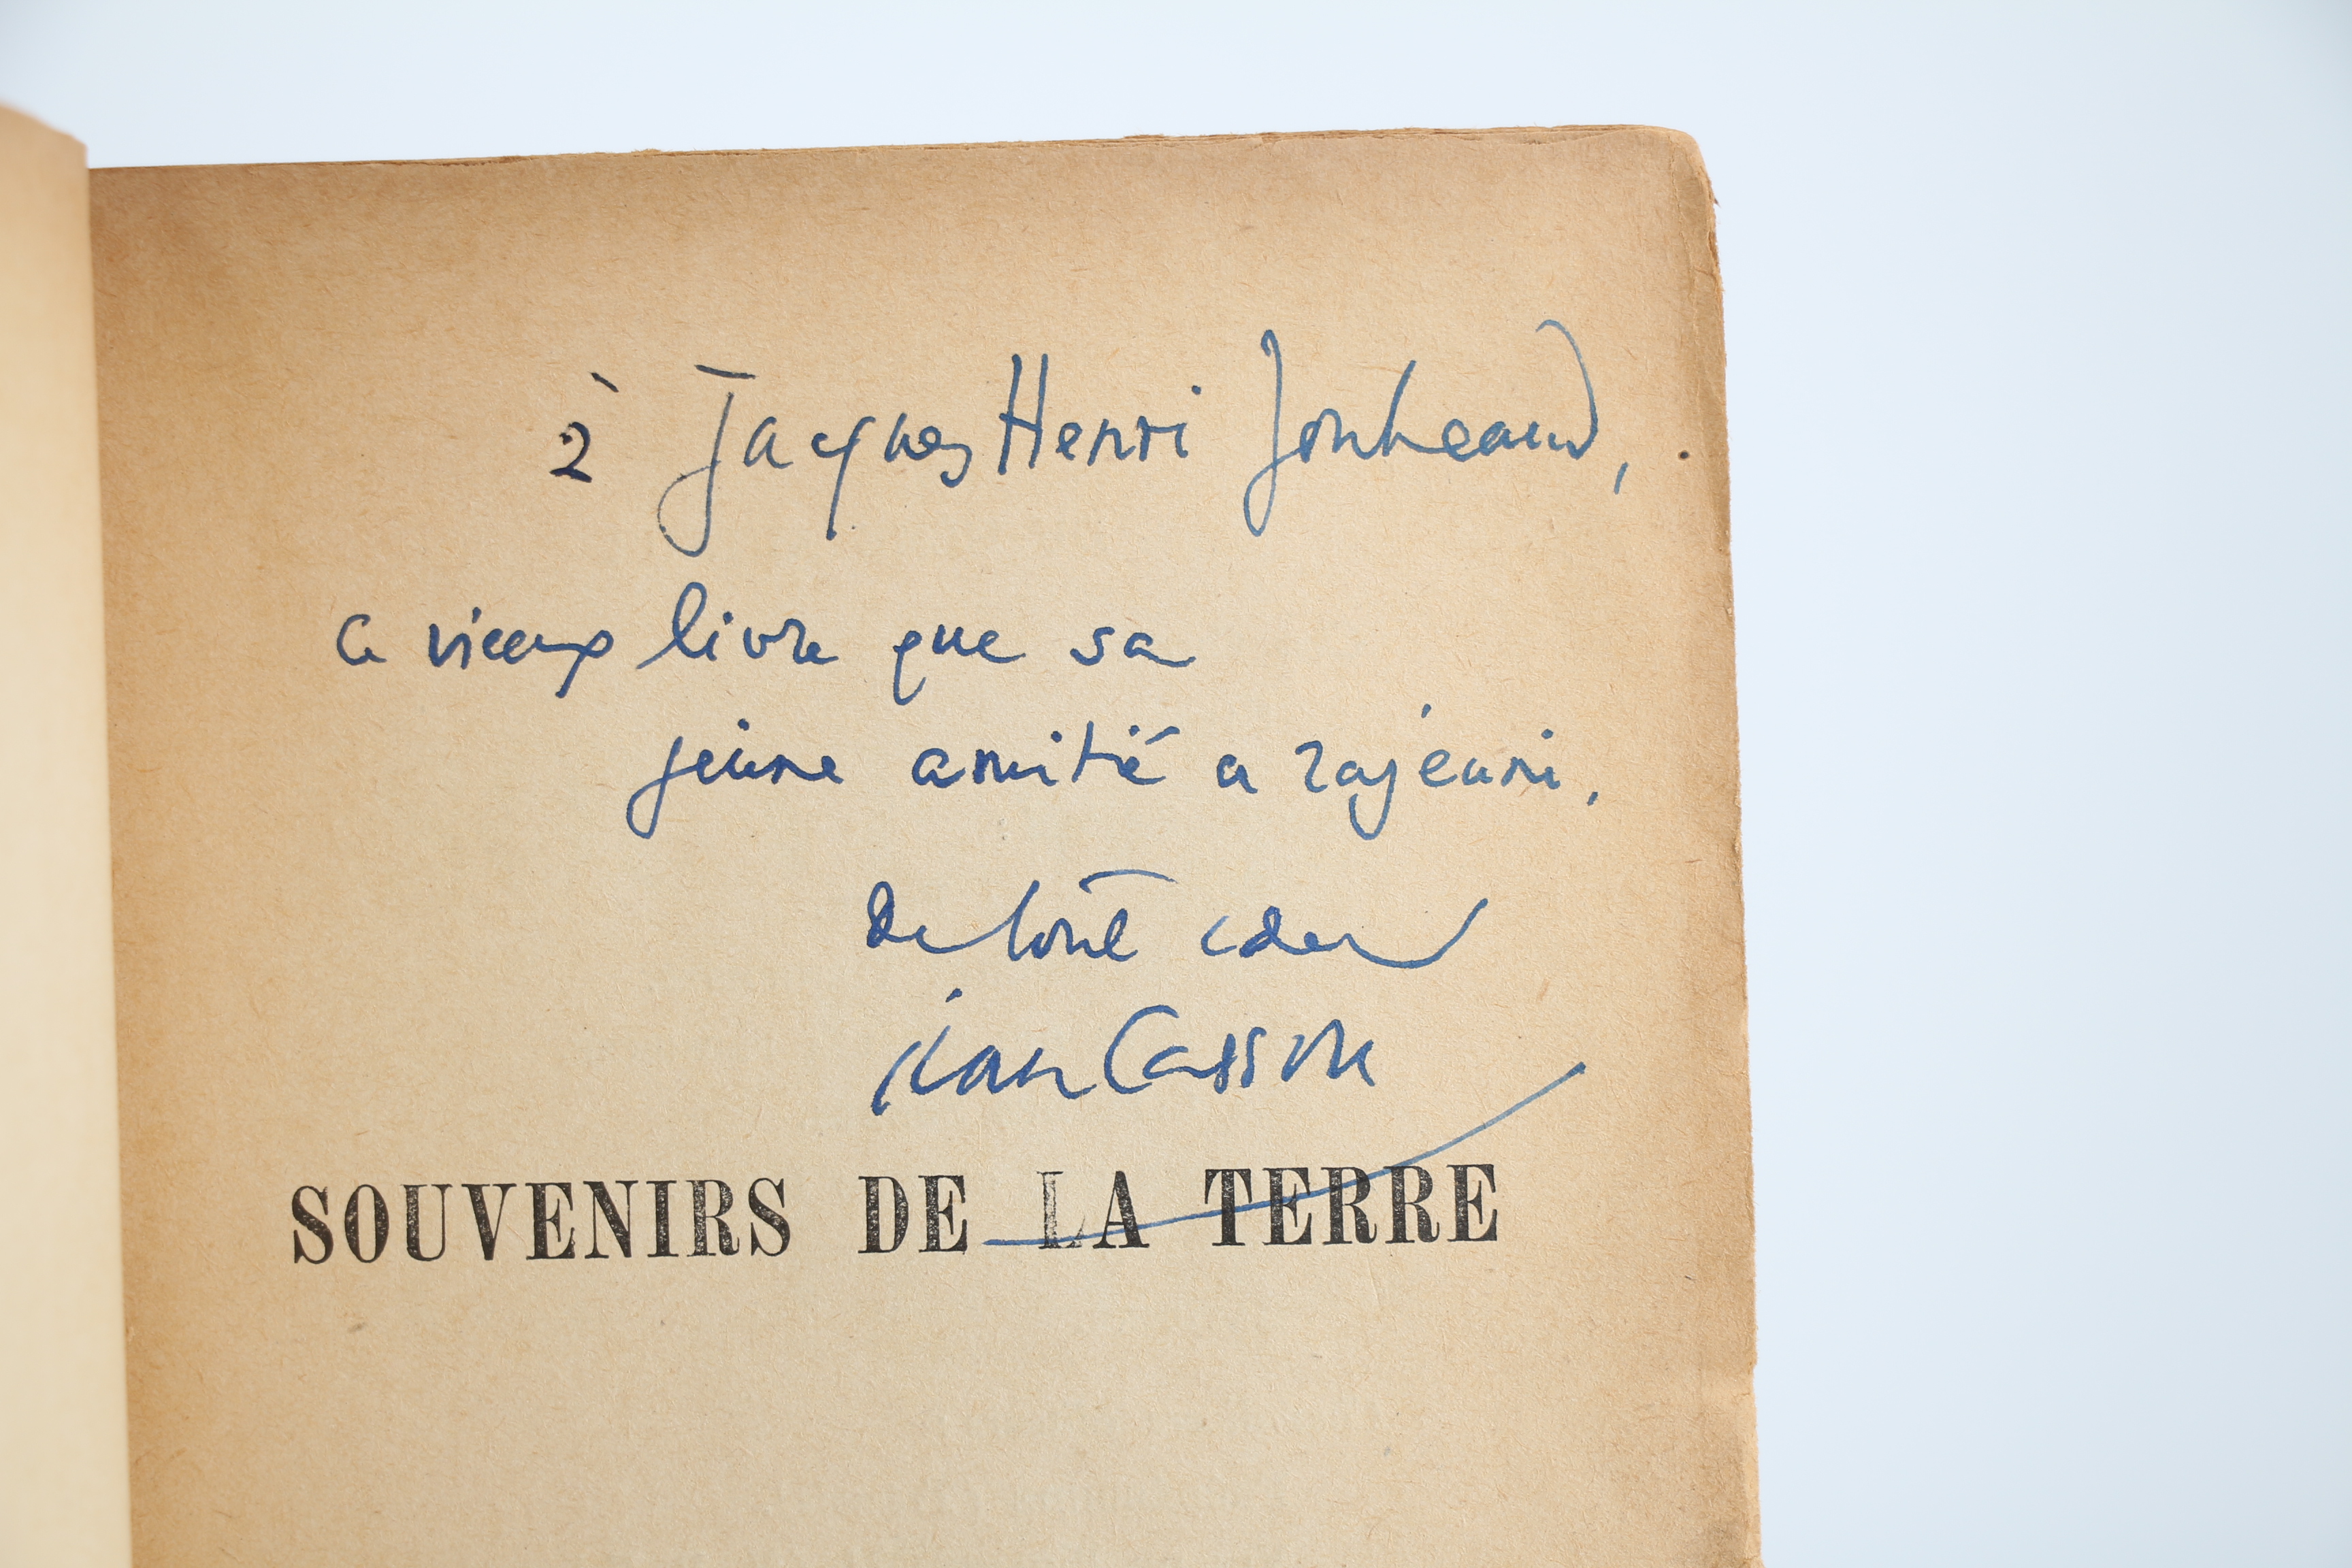 à Jacques Henri Jouheaud,
ce vieux livre que sa
jeune amitié a rajeuni,
de tout cœur
Jean Cassou
SOUVENIRS DE LA TERRE